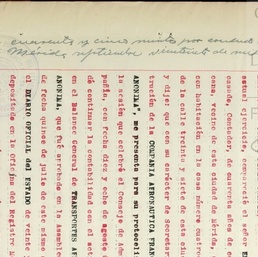 cuarenta y cinco
Mérida, septiembre
actual ejercicio compareció el señor
casado, Contador, de cuarenta años de
cana, vecino de esta ciudad de Mérida,
con habitación en la casa número
de la calle treinta y siete de esta
y dijo: que con su carácter de Secretar
tración de la COMPAÑIA AERONAUTICA FRAN
ANONIMA, me presenta para su protocoliz
la sesión que celebró el Consejo de Admi
pañía, con fecha diez y ocho de agosto
de continuar la contabilidad con el
en el Balance General de TRANSPORTES
ANONIMA, que fué aprobado en la Asamblea
de fecha quince de julio de este mismo
el DIARIO OFICIAL del ESTADO de veinte
depositada en la Oficina del Registro